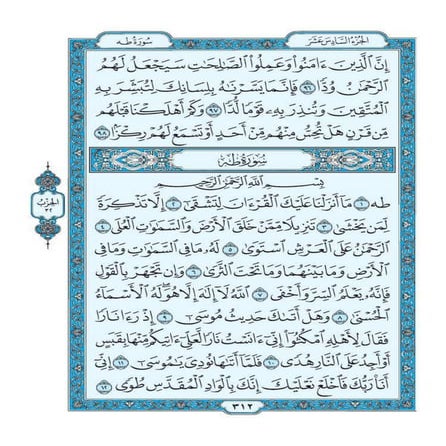 سورة طه
الجزء السادس عشر
إِنَّ ٱلَّذِينَ ءَامَنُوا۟ وَعَمِلُوا۟ ٱلصَّٰلِحَٰتِ سَيَجْعَلُ لَهُمُ
ٱلرَّحْمَٰنُ وُدًّا ٩٦ فَإِنَّمَا يَسَّرْنَٰهُ بِلِسَانِكَ لِتُبَشِّرَ بِهِ
ٱلْمُتَّقِينَ وَتُنذِرَ بِهِۦ قَوْمًا لُّدًّا ٩٧ وَكَمْ أَهْلَكْنَا قَبْلَهُم
مِّن قَرْنٍ هَلْ تُحِسُّ مِنْهُم مِّنْ أَحَدٍ أَوْ تَسْمَعُ لَهُمْ رِكْزًۢا ٩٨
سُورَةُ طه
بِسْمِ ٱللَّهِ ٱلرَّحْمَٰنِ ٱلرَّحِيمِ
طه ١ مَآ أَنزَلْنَا عَلَيْكَ ٱلْقُرْءَانَ لِتَشْقَىٰٓ ٢ إِلَّا تَذْكِرَةً
لِّمَن يَخْشَىٰ ٣ تَنزِيلًا مِّمَّنْ خَلَقَ ٱلْأَرْضَ وَٱلسَّمَٰوَٰتِ ٱلْعُلَى ٤
ٱلرَّحْمَٰنُ عَلَى ٱلْعَرْشِ ٱسْتَوَىٰ ٥ لَهُۥ مَا فِى ٱلسَّمَٰوَٰتِ وَمَا فِى
ٱلْأَرْضِ وَمَا بَيْنَهُمَا وَمَا تَحْتَ ٱلثَّرَىٰ ٦ وَإِن تَجْهَرْ بِٱلْقَوْلِ
فَإِنَّهُۥ يَعْلَمُ ٱلسِّرَّ وَأَخْفَى ٧ ٱللَّهُ لَآ إِلَٰهَ إِلَّا هُوَ لَهُ ٱلْأَسْمَآءُ
ٱلْحُسْنَىٰ ٨ وَهَلْ أَتَىٰكَ حَدِيثُ مُوسَىٰٓ ٩ إِذْ رَءَا نَارًا
فَقَالَ لِأَهْلِهِ ٱمْكُثُوٓا۟ إِنِّىٓ ءَانَسْتُ نَارًا لَّعَلِّىٓ ءَاتِيكُم مِّنْهَا بِقَبَسٍ
أَوْ أَجِدُ عَلَى ٱلنَّارِ هُدًى ١٠ فَلَمَّآ أَتَىٰهَا نُودِىَ يَٰمُوسَىٰٓ ١١ إِنِّىٓ
أَنَا۠ رَبُّكَ فَٱخْلَعْ نَعْلَيْكَ إِنَّكَ بِٱلْوَادِ ٱلْمُقَدَّسِ طُوًى ١٢
الحزب
٣٢
٣١٢